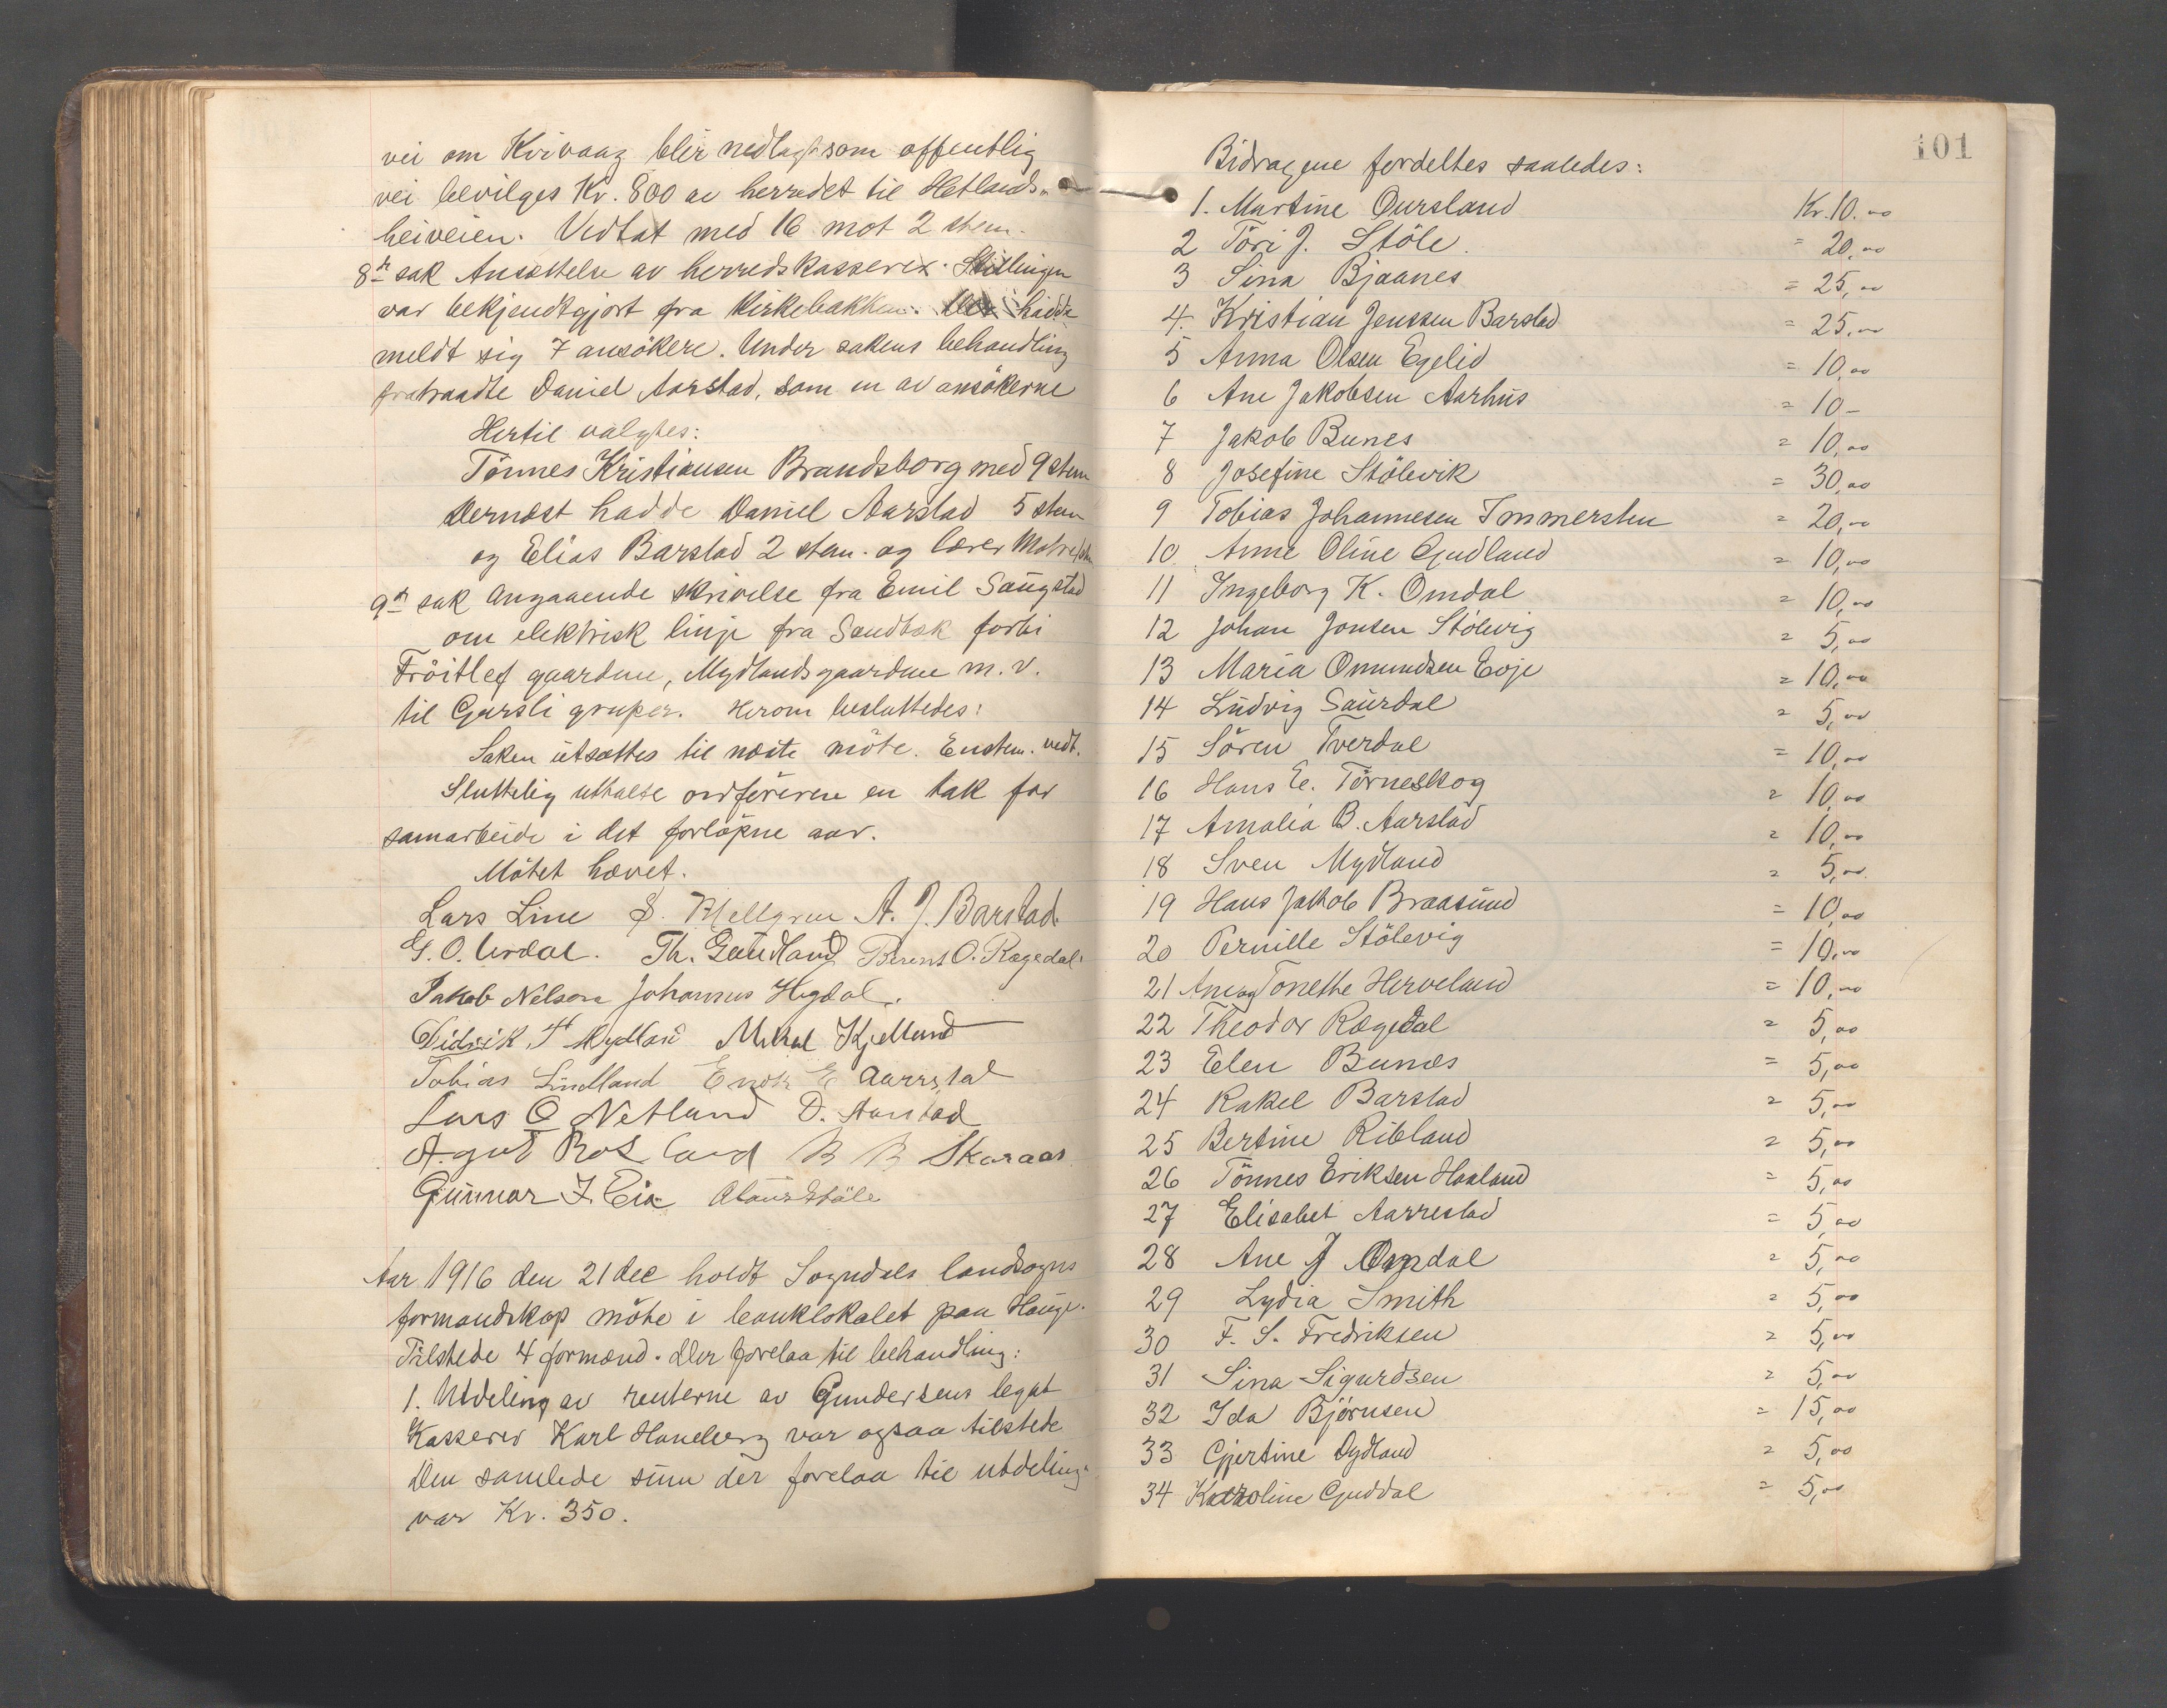 vei om Kvivaag blir nedlagt som offentlig
vei bevilges Kr. 800 av herredet til Hetlands-
heiveien. Vedtat med 16 mot 2 stem.
8de sak Ansættelse av herredskasserer. Stillingen
var bekjendtgjort fra kirkebakken. Der hadde
meldt sig 7 ansökere. Under sakens behandling
fratraadte Daniel Aarstad, som en av ansökerne
Hertil valgtes:
Tönnes Kristiansen Brandsborg med 9 stem
Dernæst hadde Daniel Aarstad 5 stem
og Elias Barstad 2 stem. og lærer
9de sak Angaaende skrivelse fra Emil Saugstad
om elektrisk linje fra Sandbæk forbi
Fröitlog gaardene, Mydlandsgaardene m.v.
til Gursli gruper. Herom besluttedes:
Saken utsættes til næste möte. Enstem. vedt.
Sluttelig uttalte ordföreren en tak for
samarbeide i det forlöpne aar.
Mötet hævet.
Lars Line S. Mellgren A. J. Barstad
G. O. Urdal. Th. Gaudland Berent O. Rægedal.
Jakob Nelson Johannes Hegdal.
Didrik T Mydland Mikal Kjelland
Tobias Lindland Endre E Aarrestad
Lars O Netland D. Aarstad
Agut Rosland B B Skaraas
Gunnar I. Eia Staale
Aar 1916 den 21 dec holdt Sogndals landsogns
formandskap möte i banklokalet paa Hauge.
Tilstede 4 formænd. Der forelaa til behandling:
1. Utdeling av renterne av Gundersens legat
Kasserer Karl Haneberg var ogsaa tilstede
Den samlede sum der forelaa til utdeling
var Kr. 350.
101
Bidragene fordeltes saaledes:
1. Martine Oursland Kr. 10.00
2 Töri J. Stöle. = 20,00
3 Sina Bjaanes = 25,00
4. Kristian Jenssen Barstad = 25,00
5 Anna Olsen Egelid = 10,00
6 Ane Jakobsen Aarhus = 10-
7 Jakob Bunes = 10,00
8 Josefine Stölevik = 30,00
9 Tobias Johannesen Immersten = 20,00
10 Anne Oline Gudland = 10,00
11 Ingeborg K. Omdal = 10,00
12 Johan Jonsen Stölevig = 5,00
13 Maria Omundsen Evje = 10,00
14 Ludvig Saurdal = 5,00
15 Sören Tverdal = 10,00
16 Hans E. Törneskog = 10,00
17 Amalia B. Aarstad = 10,00
18 Sven Mydland = 5,00
19 Hans Jakob Braasund = 10,00
20 Pernille Stölevig = 10,00
21 Ane og Tonethe Herveland = 10,00
22 Theodor Rægedal = 5,00
23 Elen Bunes = 5,00
24 Rakel Barstad = 5,00
25 Bertine Ribland = 5,00
26 Tönnes Eriksen Haaland = 5,00
27 Elisabet Aarrestad = 5,00
28 Ane J Omdal = 5,00
29 Lydia Smith = 5,00
30 F. S. Fredriksen = 5,00
31 Sina Sigurdsen = 5,00
32 Ida Björnsen = 15,00
33 Gjertine Dydland = 5,00
34 Karoline Guddal = 5,00